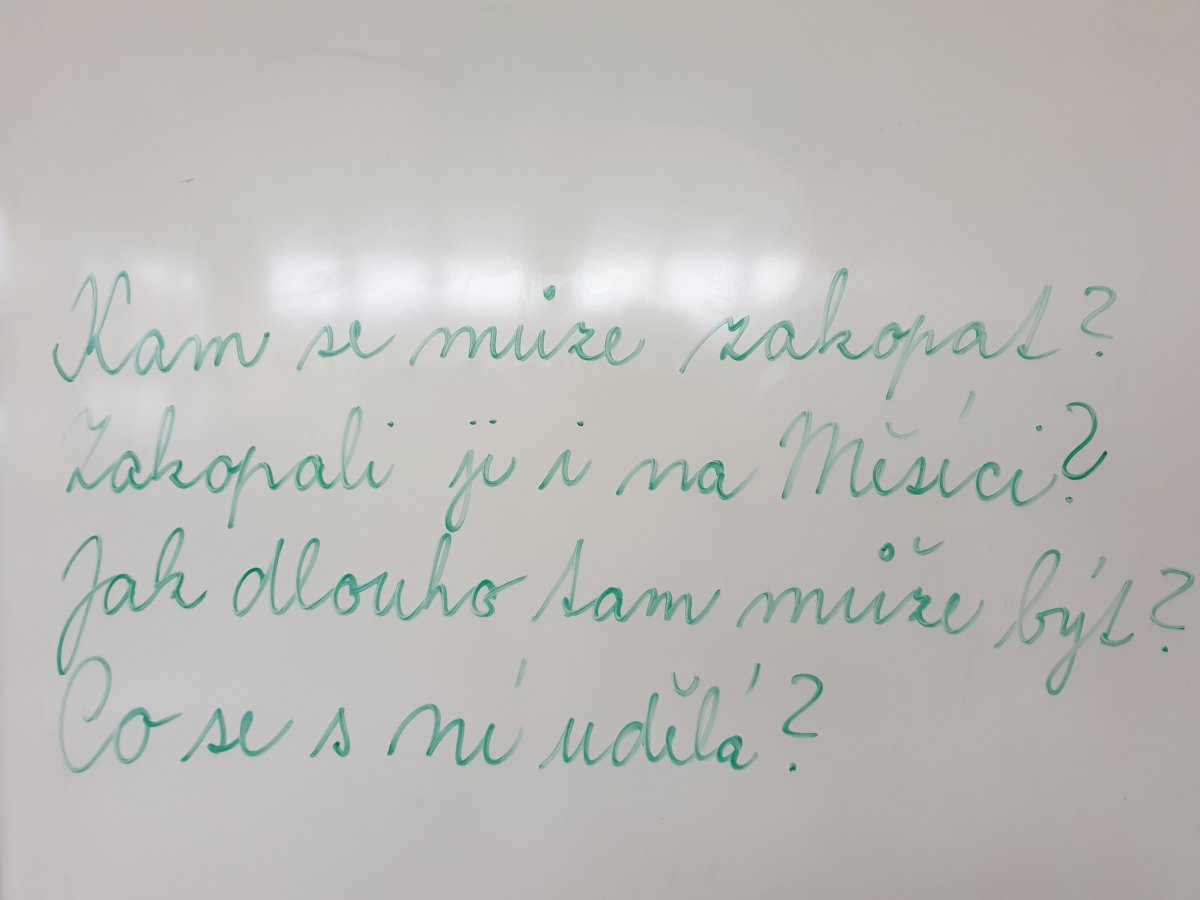 Kam se může zakopat?
Zakopali ji i na Měsíci?
Jak dlouho tam může být?
Co se s ní udělá?